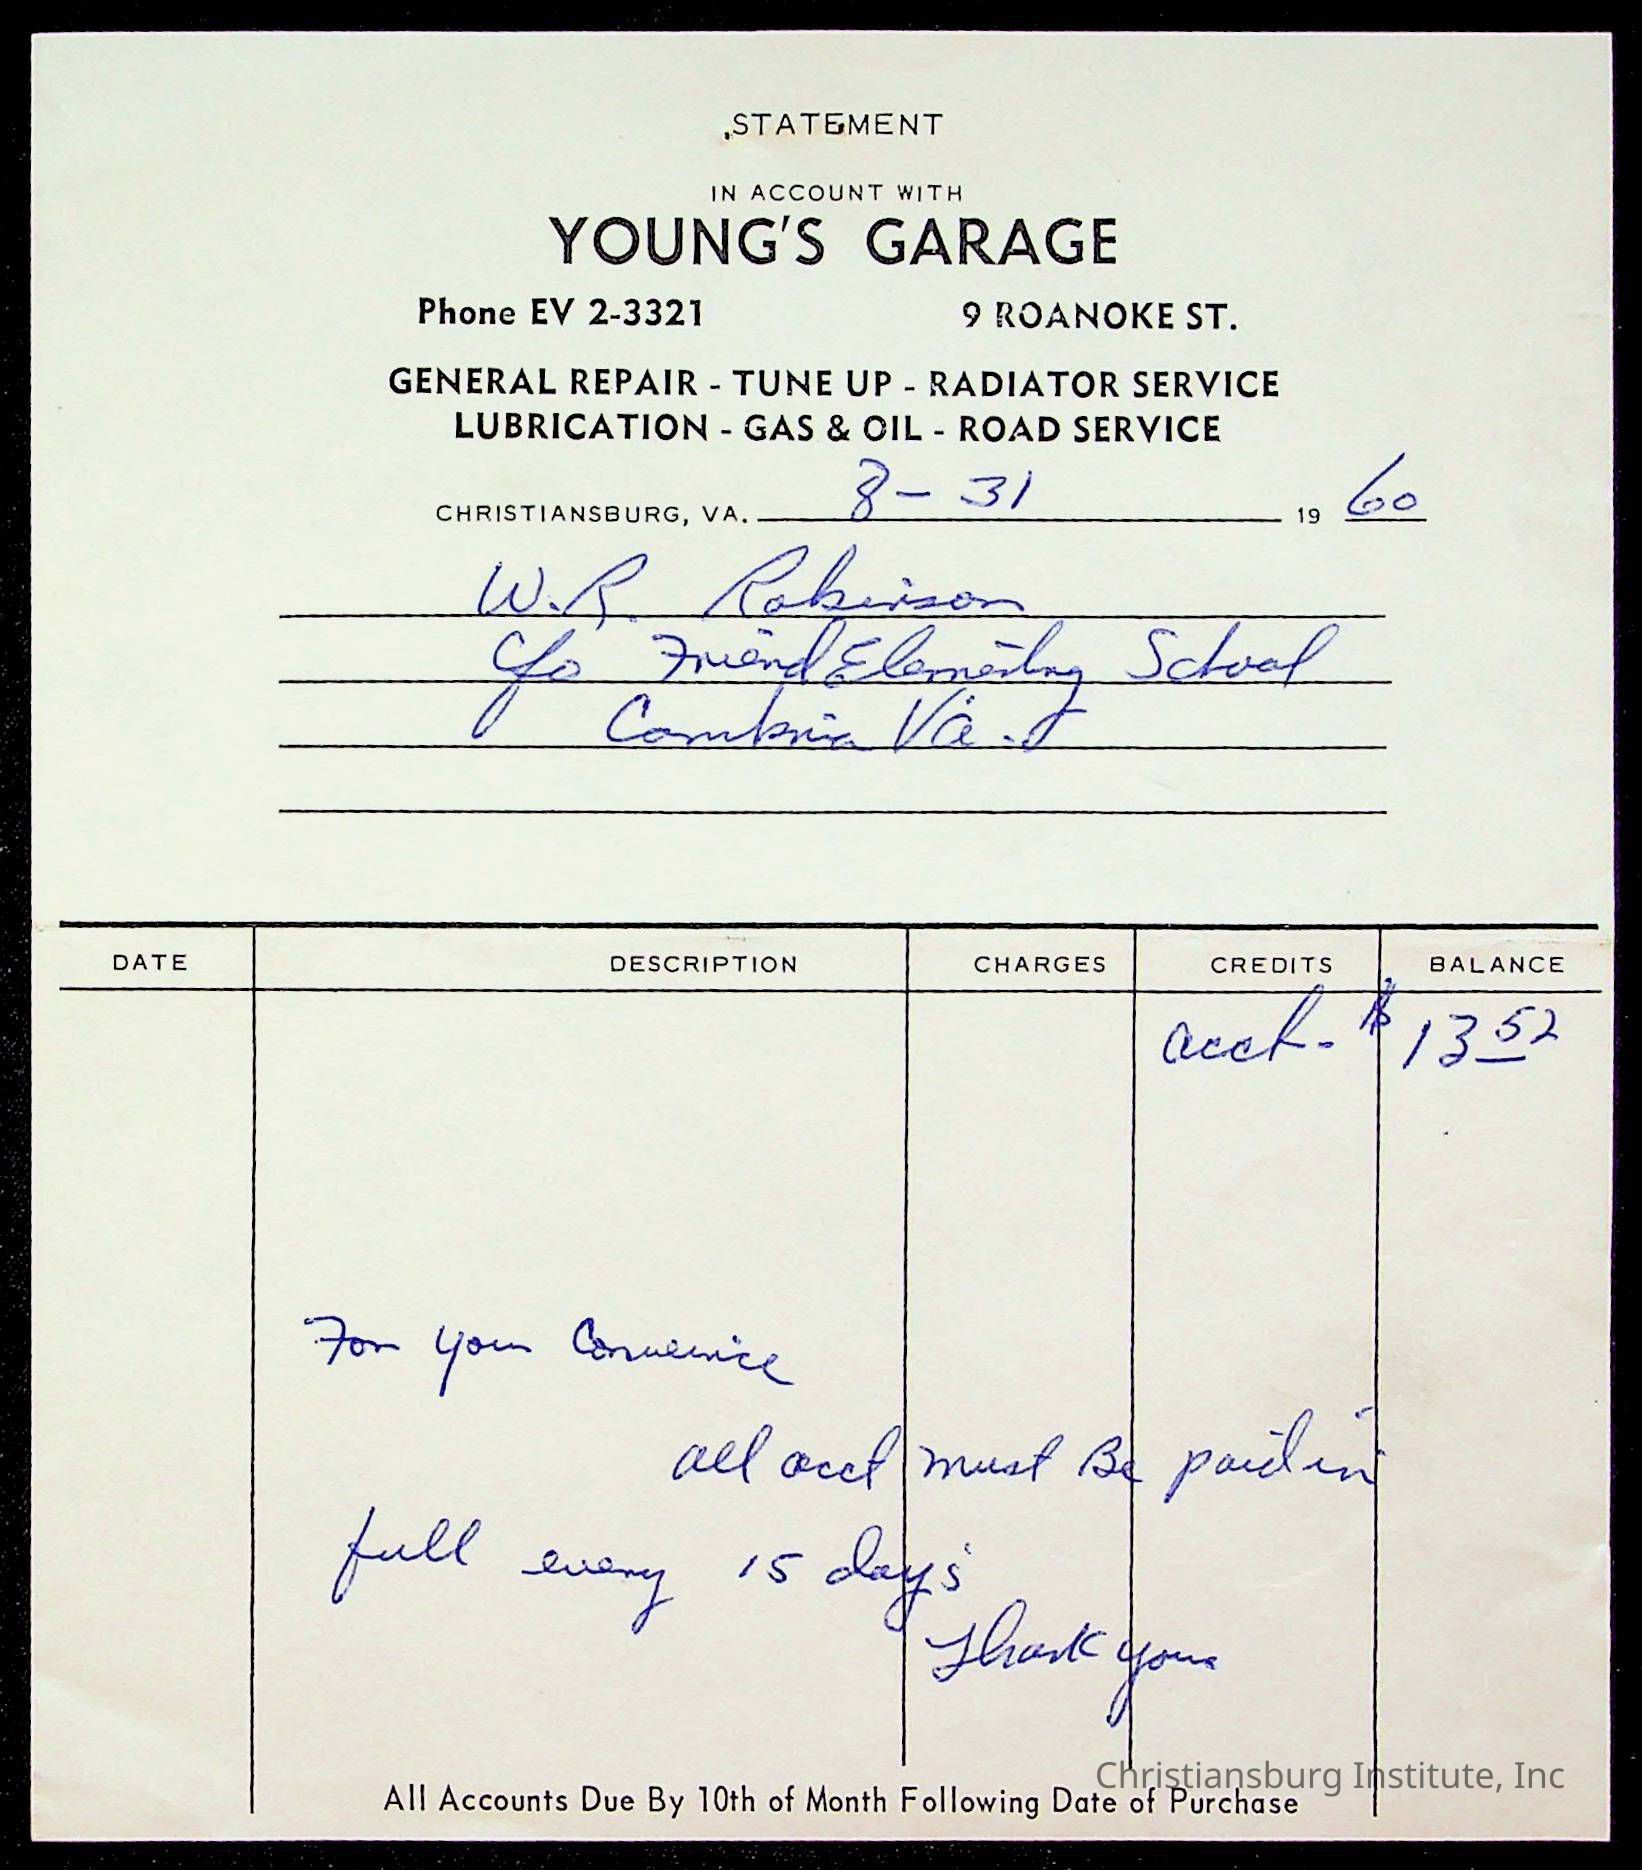 STATEMENT
IN ACCOUNT WITH
YOUNG'S GARAGE
Phone EV 2-3321 9 ROANOKE ST.
GENERAL REPAIR - TUNE UP - RADIATOR SERVICE
LUBRICATION - GAS & OIL - ROAD SERVICE
CHRISTIANSBURG, VA. 8-31 19 60
W.R. Robinson
c/o Friend Elementry School
Cambria Va.
DATE DESCRIPTION CHARGES CREDITS BALANCE
acct - $ 13 52
For your Convenice
all acct must Be paid in
full every 15 day's
Thank you
Christiansburg Institute, Inc
All Accounts Due By 10th of Month Following Date of Purchase